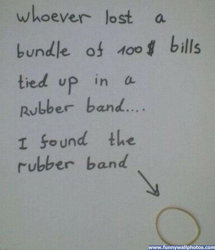 Whoever lost a
bundle of 100$ bills
tied up in a
Rubber band....
I found the
rubber band
www.funnywallphotos.com